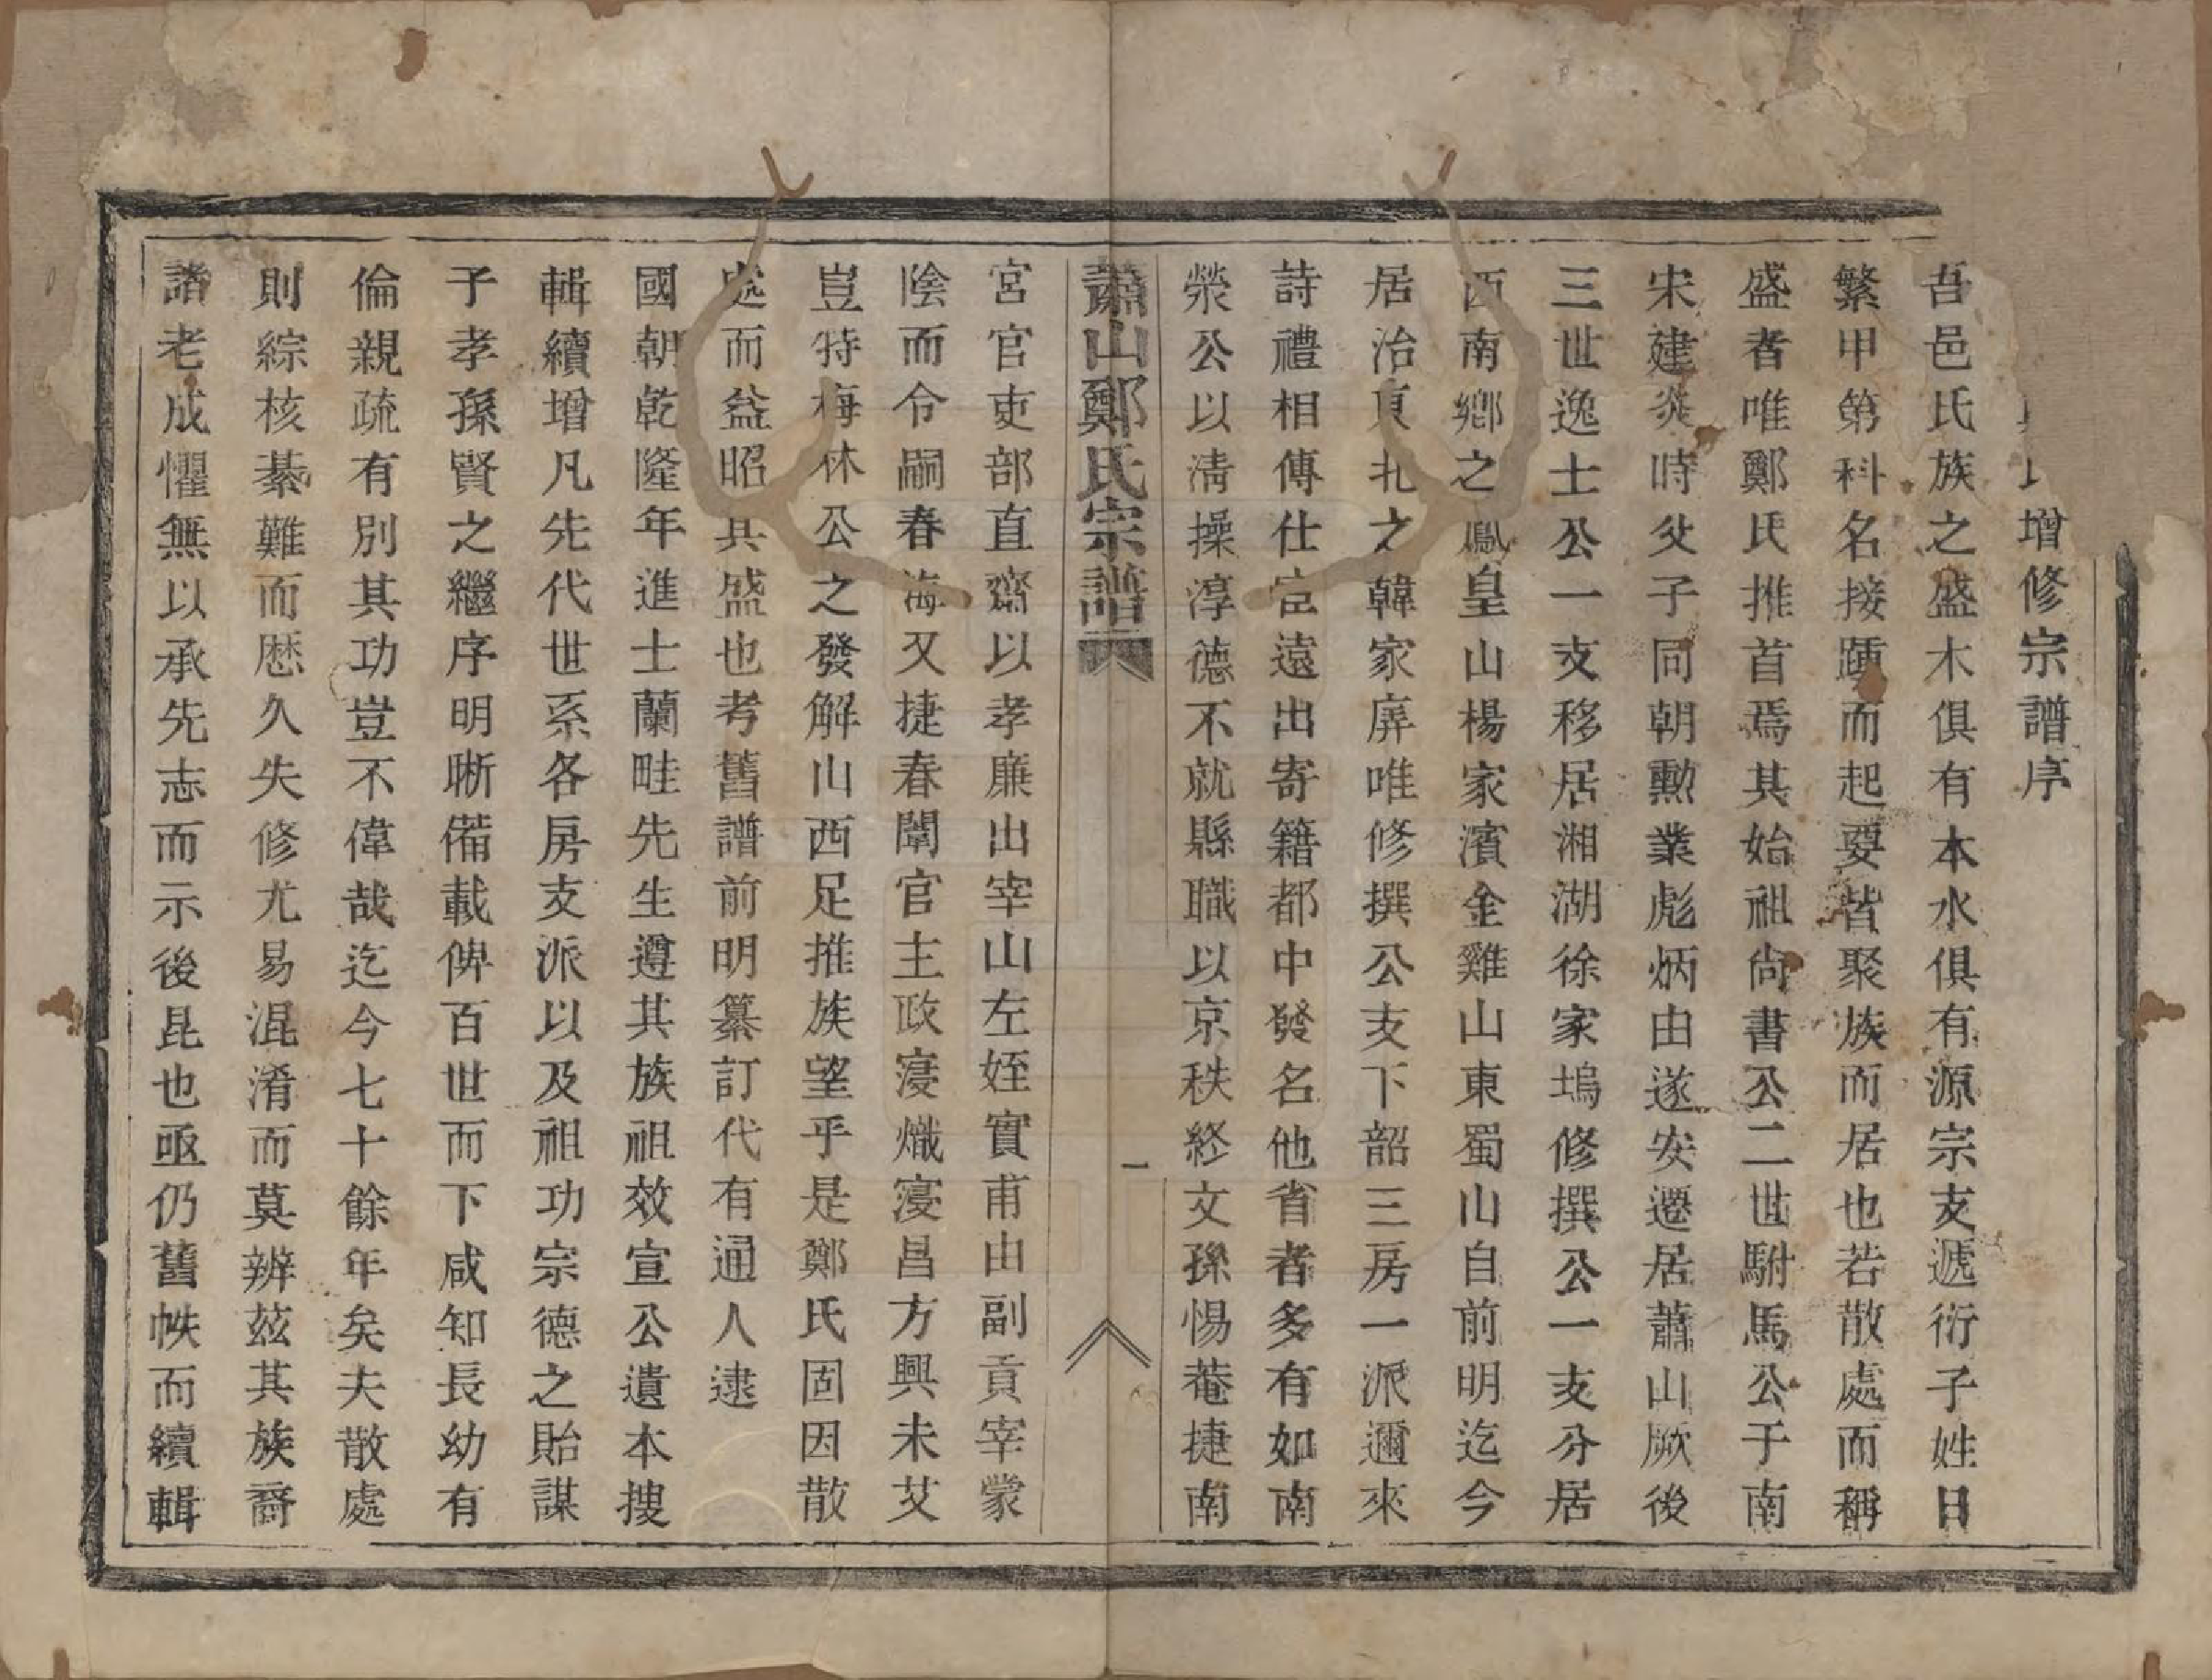 增修宗譜序
吾邑氏族之盛木俱有本水俱有源宗支遞衍子姓日
繁甲第科名接踵而起要皆聚族而居也若散處而稱
盛者唯鄭氏推首焉其始祖尙書公二世駙馬公于南
宋建炎時父子同朝勲業彪炳由遂安遷居蕭山厥後
三世逸士公一支移居湘湖徐家塢修撰公一支分居
西南鄉之鳳皇山楊家濱金雞山東蜀山自前明迄今
居治東北之韓家衖唯修撰公支下韶三房一派邇來
詩禮相傳仕宦遠出寄籍都中發名他省者多有如南
榮公以淸操淳德不就縣職以京秩終文孫惕菴捷南
蕭山鄭氏宗譜
一
宮官吏部直齋以孝廉出宰山左姪實甫由副貢宰蒙
陰而令嗣春海又捷春闈官主政寖熾寖昌方興未艾
豈特梅林公之發解山西足推族望乎是鄭氏固因散
處而益昭其盛也考舊譜前明纂訂代有通人逮
國朝乾隆年進士蘭畦先生遵其族祖效宣公遺本搜
輯續增凡先代世系各房支派以及祖功宗德之貽謀
子孝孫賢之繼序明晣備載俾百世而下咸知長幼有
倫親疏有別其功豈不偉哉迄今七十餘年矣夫散處
則綜核綦難而歷久失修尤易混淆而莫辨茲其族裔
諸老成懼無以承先志而示後昆也亟仍舊帙而續輯